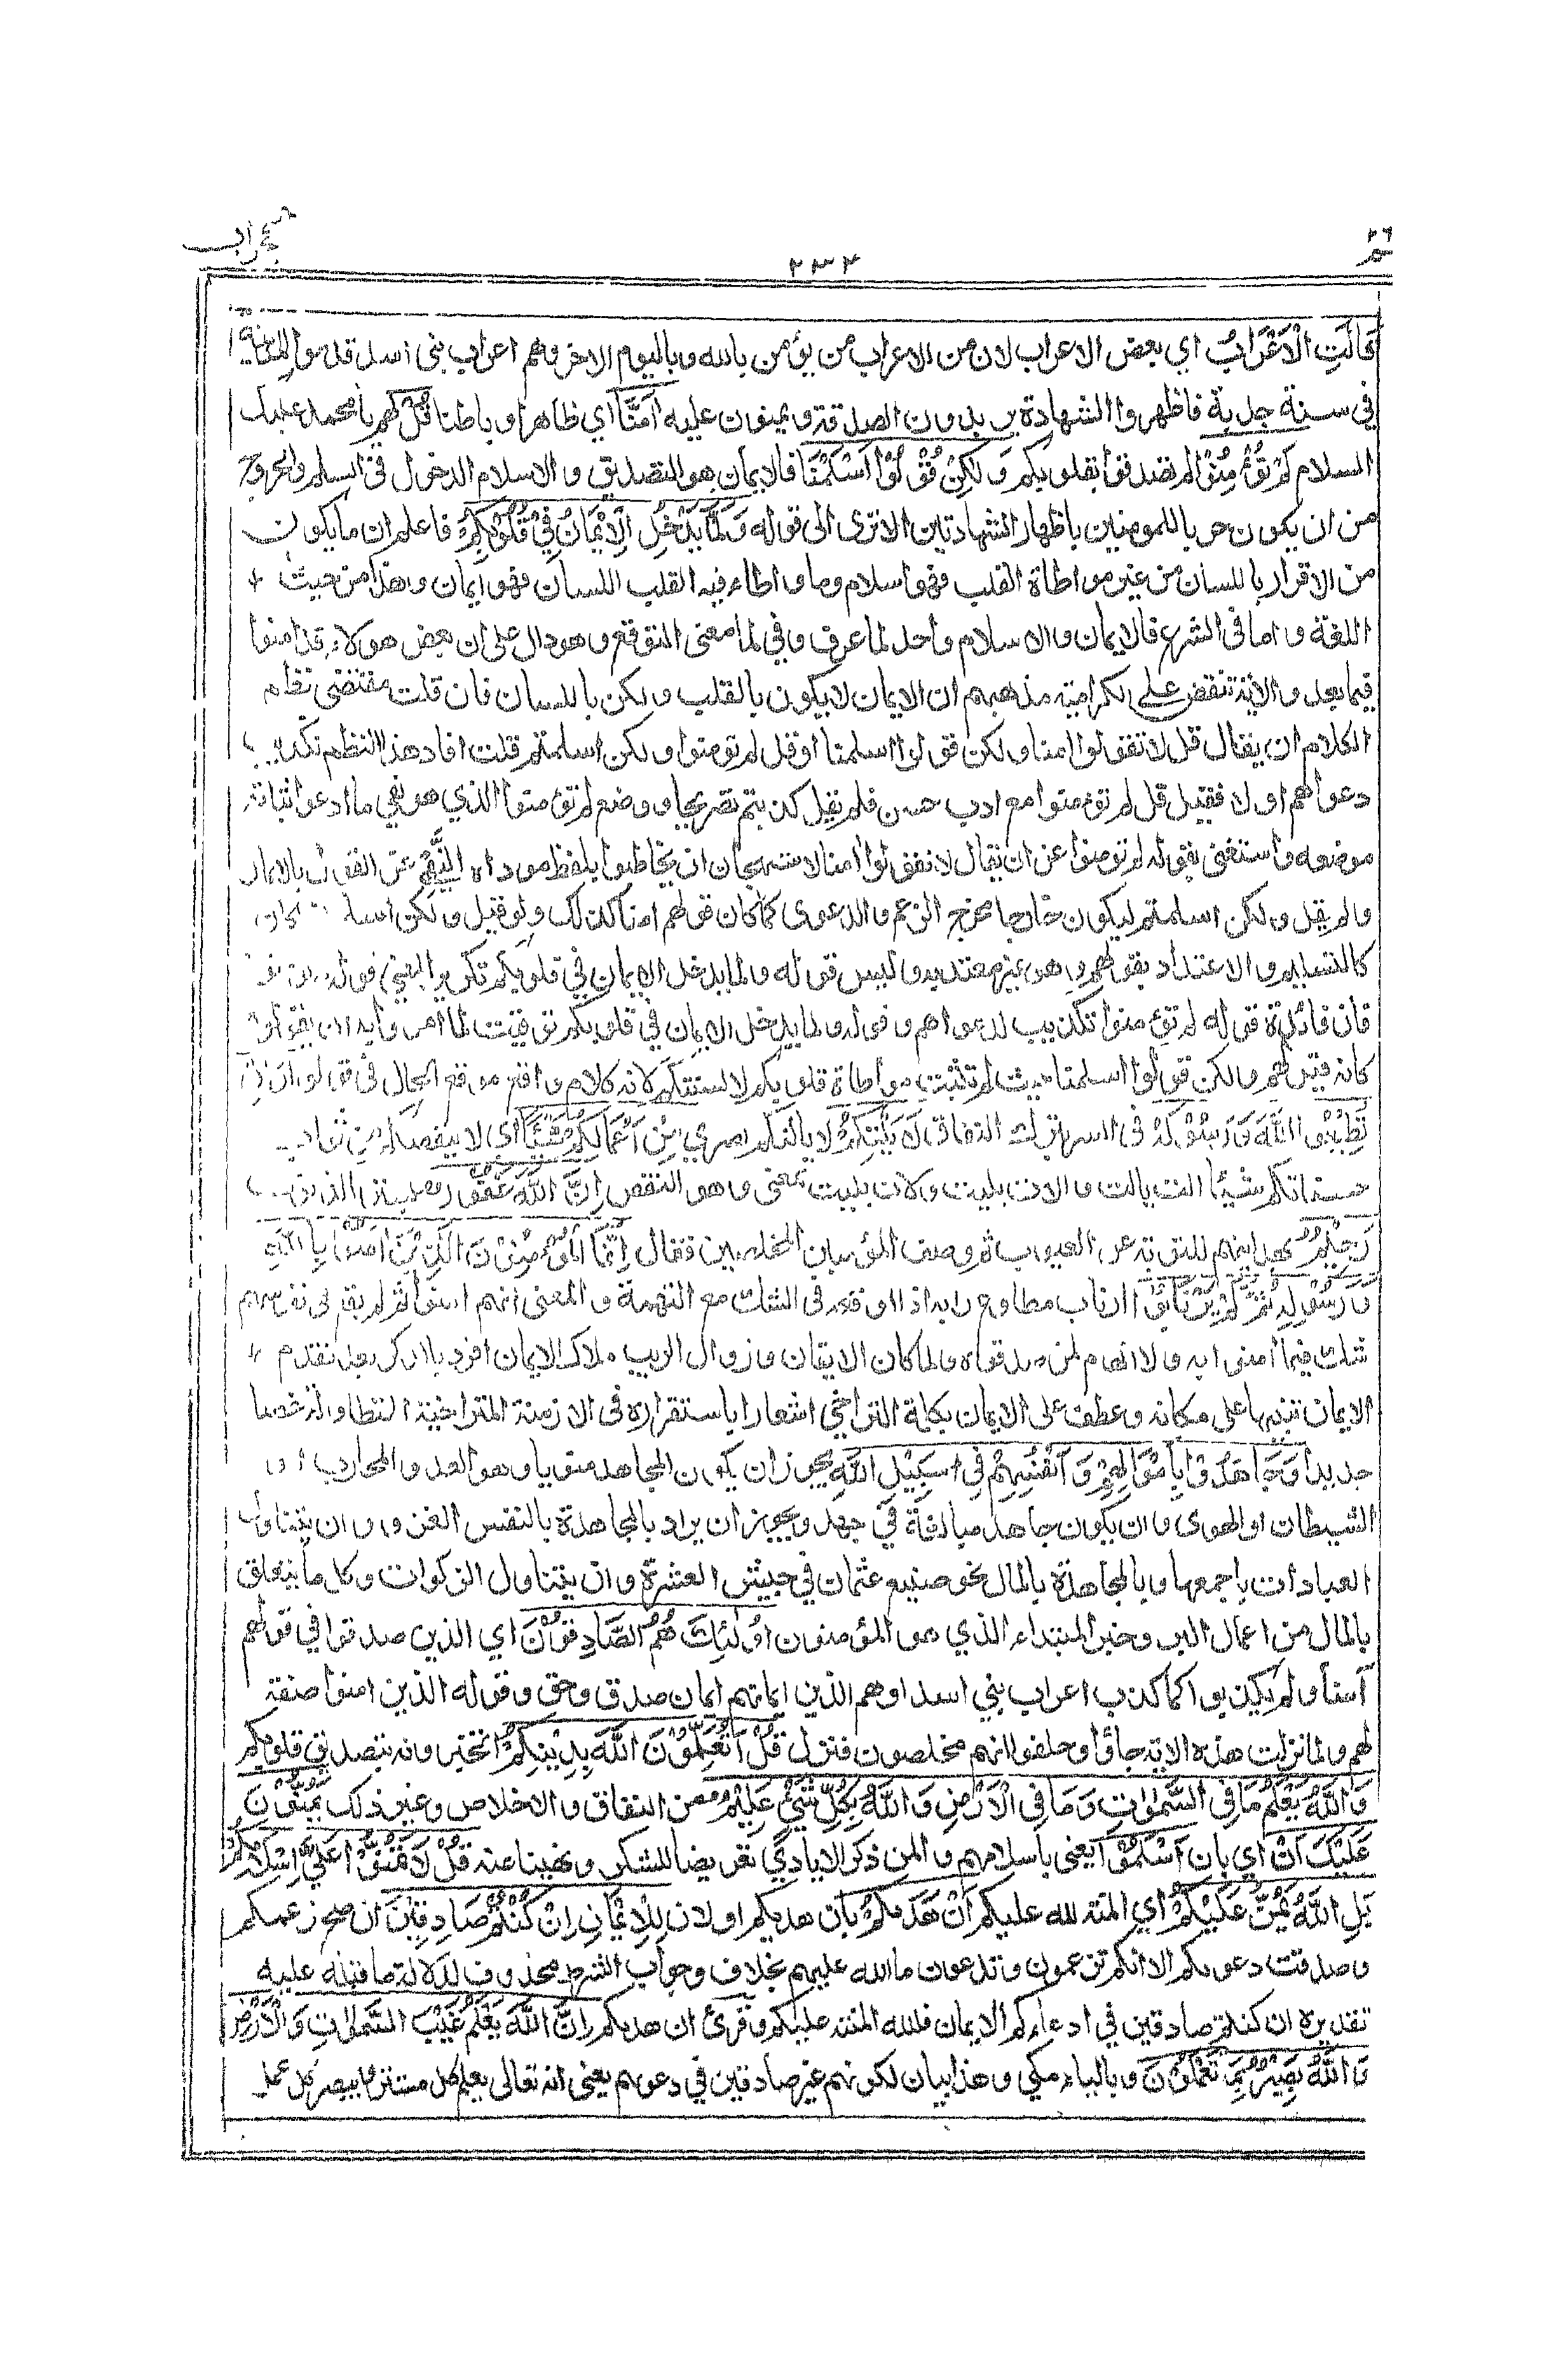 ٢٦
حٰمٓ
٢٣٢
الحجرات
قَالَتِ الْاَعْرَابُ اي بعض الاعراب لان من الاعراب من يؤمن بالله وباليوم الاخر وهم اعراب بني اسد قدموا المدينة
في سنة جدبة فاظهروا الشهادة يريدون الصدقة ويمنون عليه اٰمَنَّا اي ظاهرا وباطنا قُلْ لهم يا محمد عليك
السلام لَمْ تُؤْمِنُوْا لم تصدقوا بقلوبكم وَلٰكِنْ قُوْلُوْا اَسْلَمْنَا فالايمان هو التصديق والاسلام الدخول في السلم والخروج
من ان يكون حربا للمومنين باظهار الشهادتين الا ترى الى قوله وَلَمَّا يَدْخُلِ الْاِيْمَانُ فِيْ قُلُوْبِكُمْ فاعلم ان ما يكون
من الاقرار باللسان من غير مواطاة القلب فهو اسلام وما واطاء فيه القلب اللسان فهو ايمان وهذا من حيث
اللغة واما في الشرع فالايمان والاسلام واحد لما عرف وفي لما معنى التوقع وهو دال على ان بعض هولاء قد امنوا
فيما بعد والآية تنقض على الكرامية مذهبهم ان الايمان لا يكون بالقلب ولكن باللسان فان قلت مقتضى نظم
الكلام ان يقال قل لا تقولوا امنا ولكن قولوا اسلمنا او قل لم تومنوا ولكن اسلمتم قلت افاد هذا النظم تكذيب
دعواهم اولا فقيل قل لم تؤمنوا مع ادب حسن فلم يقل كذبتم تصريحا ووضع لم تؤمنوا الذي هو نفي ما ادعوا اثباته
موضعه واستغنى بقوله لم تومنوا عن ان يقال لا تقولوا امنا لاستهجان ان يخاطبوا بلفظ موداه النهي عن القول بالايمان
ولم يقل ولكن اسلمتم ليكون خارجا مخرج الزعم والدعوى كما كان قولهم امنا كذلك ولو قيل ولكن اسلمتم لكان
كالتسليم والاعتداد بقولهم وهو غير معتد به وليس قوله ولما يدخل الايمان في قلوبكم تكريرا لمعنى قوله لم تومنوا
فان فائدة قوله لم تؤمنوا تكذيب لدعواهم وقوله ولما يدخل الايمان في قلوبكم توقيت لما امروا به ان يقولوه
كانه قيل لهم ولكن قولوا اسلمنا حيث لم تثبت مواطاة قلوبكم لالسنتكم لانه كلام واقع موقع الحال في قولوا وَاِنْ
تُطِيْعُوا اللّٰهَ وَرَسُوْلَهٗ في السر بترك النفاق لَا يَلِتْكُمْ لا يالتكم بصري مِّنْ اَعْمَالِكُمْ شَيْـًٔا اي لا ينقصكم من ثواب
حسناتكم شيئا الت يالت والات يليت ولات يليت بمعنى وهو النقص اِنَّ اللّٰهَ غَفُوْرٌ بستر الذنوب
رَّحِيْمٌ بهدايتهم للتوبة عن العيوب ثم وصف المؤمنين المخلصين فقال اِنَّمَا الْمُؤْمِنُوْنَ الَّذِيْنَ اٰمَنُوْا بِاللّٰهِ
وَرَسُوْلِهٖ ثُمَّ لَمْ يَرْتَابُوْا ارتاب مطاوع رابه اذا اوقعه في الشك مع التهمة والمعنى انهم امنوا ثم لم يقع في نفوسهم
شك فيما امنوا به ولا اتهام لمن صدقوه ولما كان الايقان وزوال الريب ملاك الايمان افرد بالذكر بعد تقدم
الايمان تنبيها على مكانه وعطف على الايمان بكلمة التراخي اشعارا باستقراره في الازمنة المتراخية المتطاولة غضا
جديدا وَجَاهَدُوْا بِاَمْوَالِهِمْ وَاَنْفُسِهِمْ فِيْ سَبِيْلِ اللّٰهِ يجوز ان يكون المجاهد منويا وهو العدو المحارب او
الشيطان او الهوى وان يكون جاهد مبالغة في جهد ويجوز ان يراد بالمجاهدة بالنفس الغزو وان يتناول
العبادات باجمعها وبالمجاهدة بالمال نحو صنيع عثمان في جيش العسرة وان يتناول الزكوات وكل ما يتعلق
بالمال من اعمال البر وخبر المبتداء الذي هو المؤمنون اُولٰئِكَ هُمُ الصَّادِقُوْنَ اي الذين صدقوا في قولهم
آمنا ولم يكذبوا كما كذب اعراب بني اسد او هم الذين ايمانهم ايمان صدق وحق وقوله الذين امنوا صفة
لهم ولما نزلت هذه الاية جاؤا وحلفوا انهم مخلصون فنزل قُلْ اَتُعَلِّمُوْنَ اللّٰهَ بِدِيْنِكُمْ اتخبرونه بتصديق قلوبكم
وَاللّٰهُ يَعْلَمُ مَا فِى السَّمٰوٰتِ وَمَا فِى الْاَرْضِ وَاللّٰهُ بِكُلِّ شَيْءٍ عَلِيْمٌ من النفاق والاخلاص وغير ذلك يَمُنُّوْنَ
عَلَيْكَ اَنْ اي بان اَسْلَمُوْا يعنى باسلامهم والمن ذكر الايادي تعريضا للشكر ونهينا عنه قُلْ لَا تَمُنُّوْا عَلَيَّ اِسْلَامَكُمْ
بَلِ اللّٰهُ يَمُنُّ عَلَيْكُمْ اي المنة لله عليكم اَنْ هَدٰىكُمْ بان هديكم او لان لِلْاِيْمَانِ اِنْ كُنْتُمْ صَادِقِيْنَ ان صح زعمكم
وصدقت دعوىكم الا انكم تزعمون وتدعون ما الله عليهم بخلافه وجواب الشرط محذوف لدلالة ما قبله عليه
تقديره ان كنتم صادقين في ادعاءكم الايمان فلله المنة عليكم وقرئ ان هديكم اِنَّ اللّٰهَ يَعْلَمُ غَيْبَ السَّمٰوٰتِ وَالْاَرْضِ
وَاللّٰهُ بَصِيْرٌ بِمَا تَعْمَلُوْنَ وبالياء مكي وهذا بيان لكونهم غير صادقين في دعوىهم يعنى انه تعالى يعلم كل مستتر ويبصر كل عمل